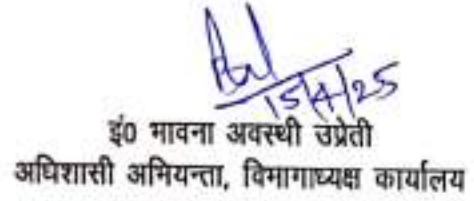 15/4/25
इं0 भावना अवस्थी उप्रेती
अधिशासी अभियन्ता, विभागाध्यक्ष कार्यालय